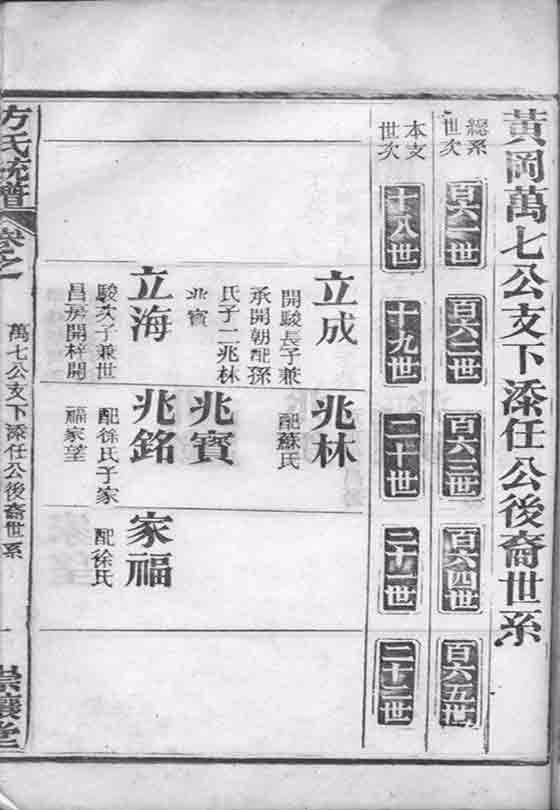 黃岡萬七公支下添任公後裔世系
總系
世次
百六一世
百六二世
百六三世
百六四世
百六五世
本支
世次
十八世
十九世
二十世
二十一世
二十二世
立成
開駿長子兼
承開朝配孫
氏子二兆林
兆寶
立海
駿次子兼世
昌房開梓開
兆林
配蘇氏
兆寶
兆銘
配徐氏子家
福家望
家福
配徐氏
方氏統譜
卷之
萬七公支下添任公後裔世系
一